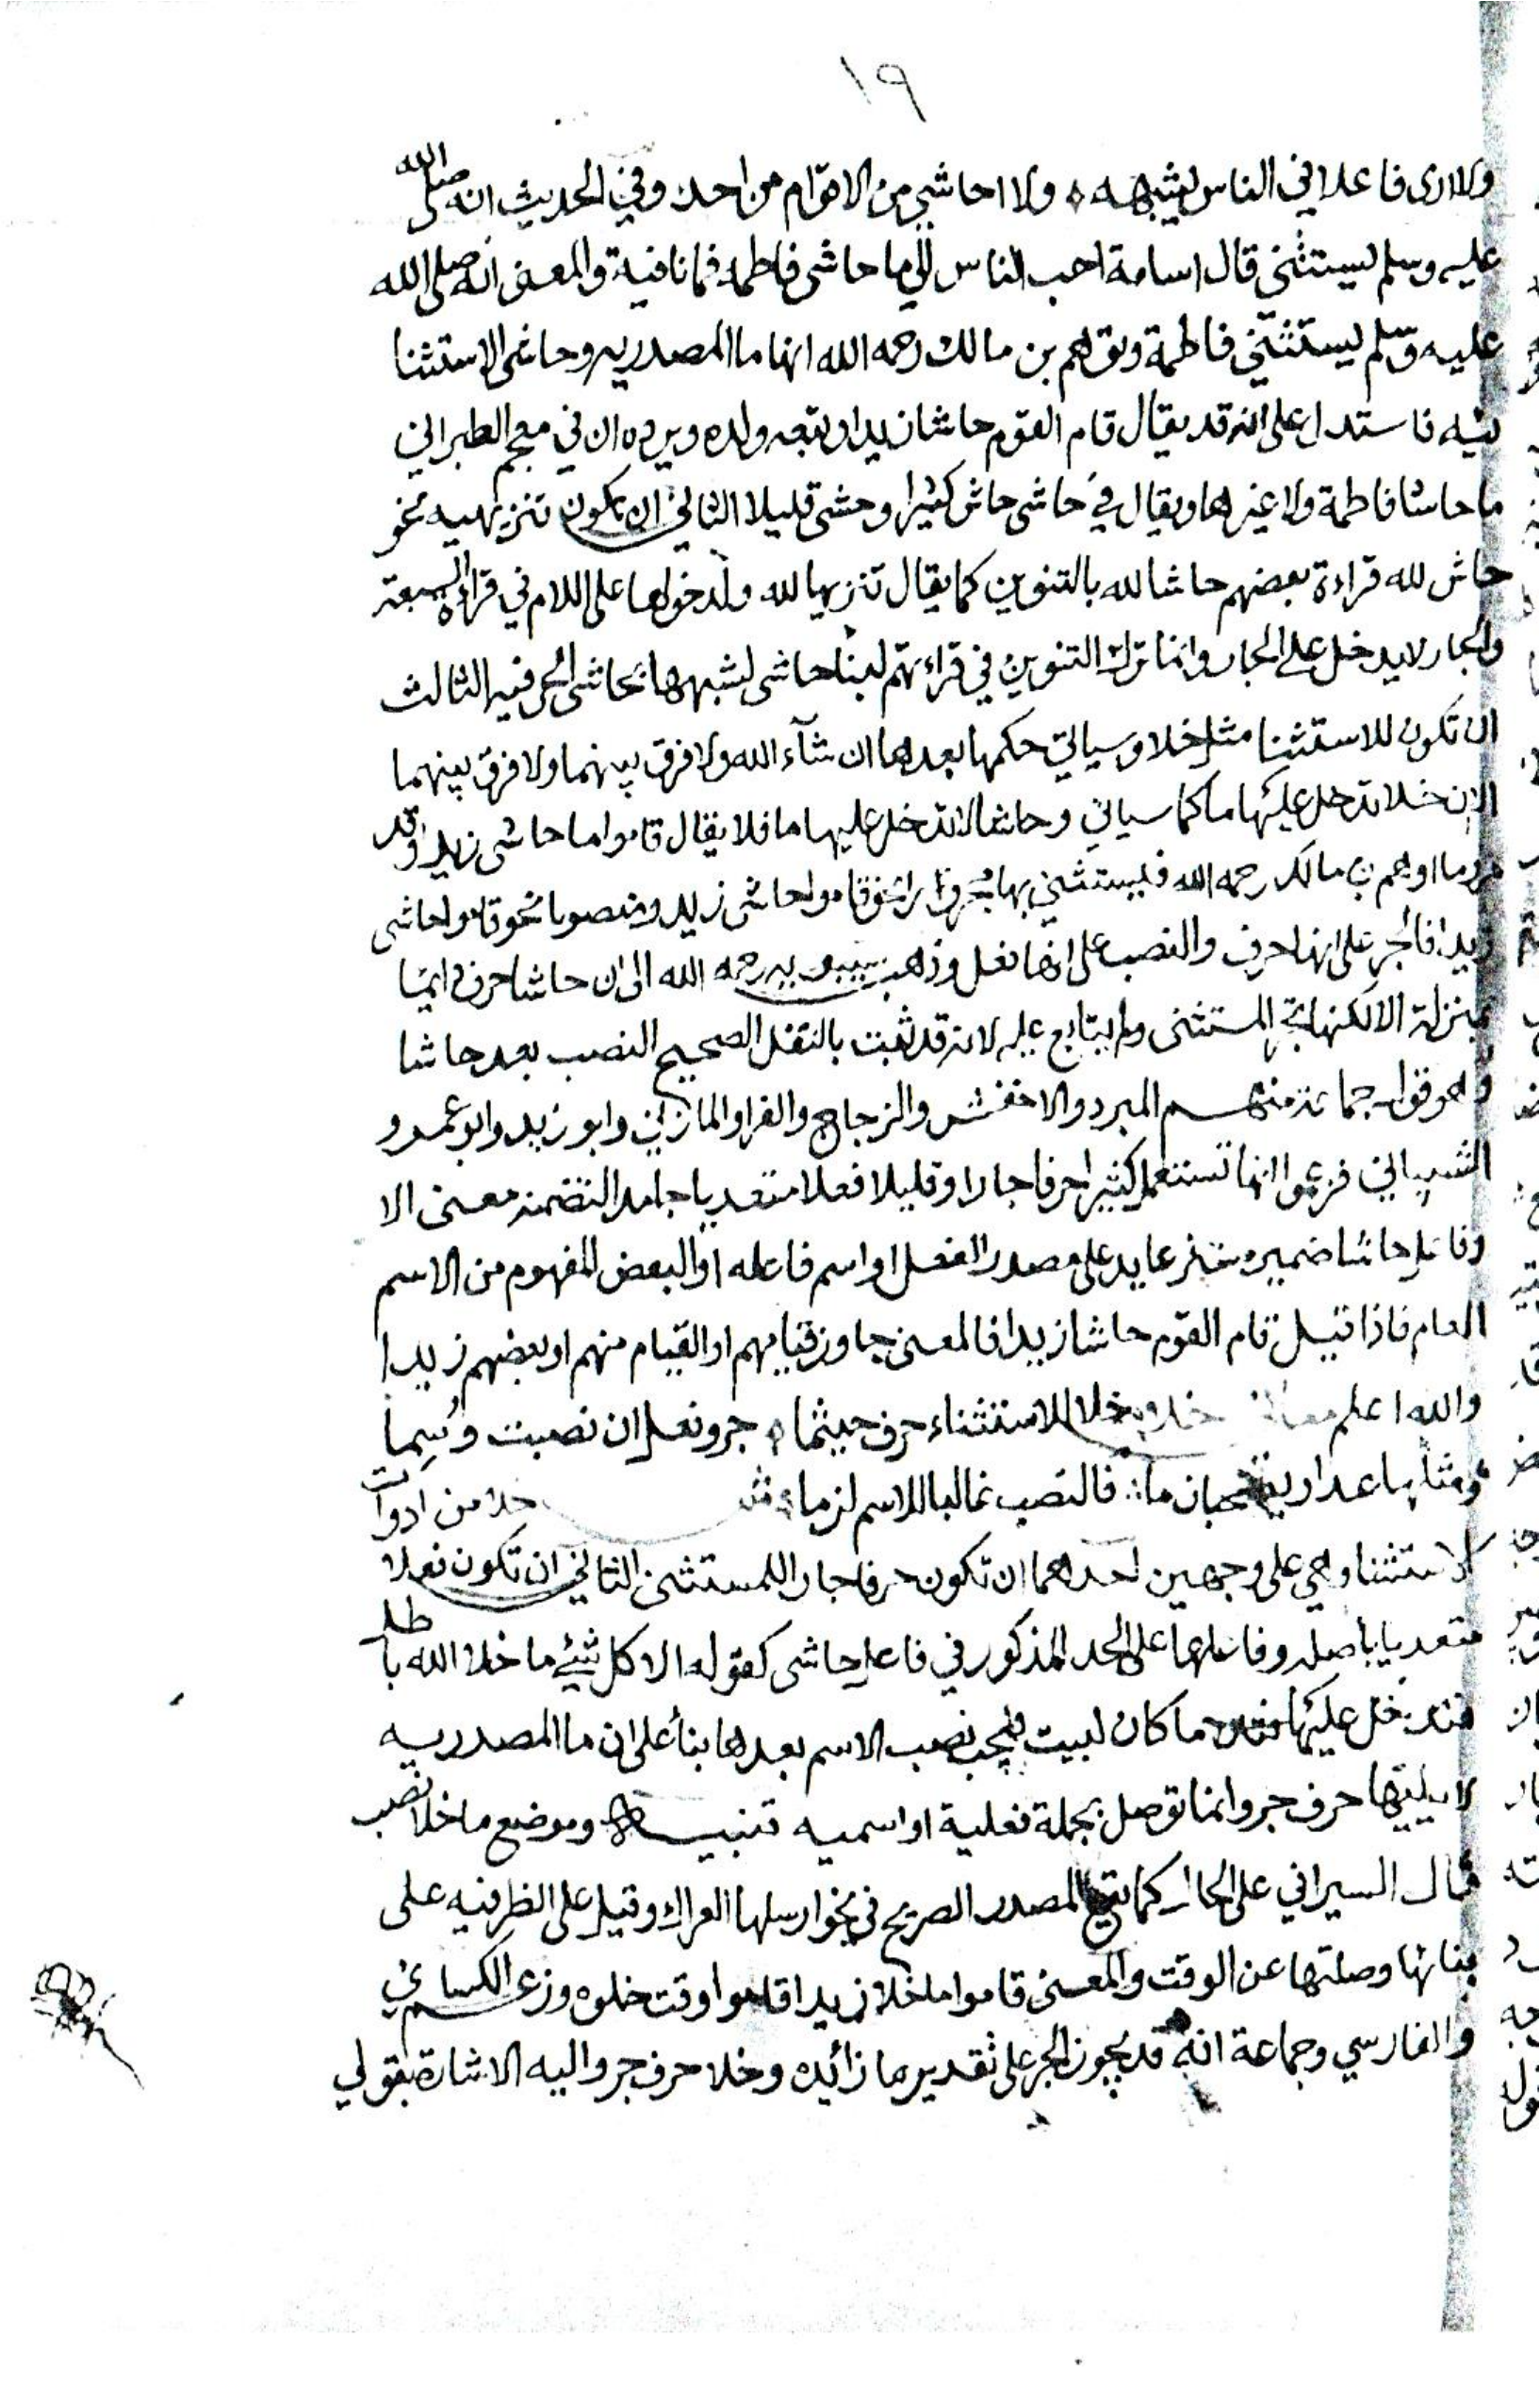 ١٩
ولا ارى فاعلا في الناس يشبهه ۞ ولا احاشي من الاقوام من احد وفي الحديث انه صلى الله
عليه وسلم ليستثني قال اسامة احب الناس الي ما حاشى فاطمة فما نافية والمعنى انه صلى الله
عليه وسلم ليستثني فاطمة وتوهم بن مالك رحمه الله انها ما المصدريه وحاشى الاستثنا
ئيه فاستدل على انه قد يقال قام القوم حاشا زيدا ويرده ان في معجم الطبراني
ما حاشا فاطمة ولا غيرها ويقال في حاشى حاش كثيرا وحشى قليلا الثاني ان تكون تنزيهيه نحو
حاش لله قراءة بعضهم حاشا لله بالتنوين كما يقال تنزيها لله ولدخولها على اللام في قراءة السبعة
والجار لا يدخل على الجار وانما ترك التنوين في قراءتهم لبنا حاشى لشبهها بحاشى الحرفيه الثالث
ان تكون للاستثنا مثل خلا وسياتي حكمها بعدها ان شآء الله ولا فرق بينهما ولا فرق بينهما
الا ان خلا تدخل عليها ما كما سياتي وحاشا لا تدخل عليها ما فلا يقال قاموا ما حاشى زيدا وقد
مر ما اوهم بن مالك رحمه الله فيستثني بها مجرورا نحو قاموا حاشى زيد ومنصوبا نحو قاموا حاشى
زيدا فالجر على انها حرف والنصب على انها فعل وذهب سيبويه رحمه الله الى ان حاشا حرف دائما
بمنزلة الا لكنها تجر المستثنى ولم يتابع عليه لانه قد ثبت بالنقل الصحيح النصب بعد حاشا
وهو قول جماعة منهم المبرد والاخفش والزجاج والفرا والمازني وابو زيد وابو عمرو
الشيباني فزعموا انها تستعمل كثيرا حرفا جارا وقليلا فعلا متعديا جامدا لتضمنه معنى الا
وفاعل حاشا ضمير مستتر عايد على مصدر الفعل او اسم فاعله او البعض المفهوم من الاسم
العام فاذا قيل قام القوم حاشا زيدا فالمعنى جاوز قيامهم او القيام منهم او بعضهم زيدا
والله اعلم خلا وخلا للاستثناء حرف حيثما ۞ جر وفعل ان نصبت وسما
ومثلها عدا ويصحبان ما ∴ فالنصب غالبا للاسم لزما خلا من ادوات
الاستثنا وهي على وجهين احدهما ان تكون حرفا جارا للمستثنى الثاني ان تكون فعلا
متعديا باصله وفاعلها على الحد المذكور في فاعل حاشى كقوله الا كل شيئ ما خلا الله باطل
فتدخل عليها ما كان لبيت فيجب نصب الاسم بعدها بنأ على ان ما المصدريه
لا يليها حرف جر وانما توصل بجملة فعلية او اسميه تنبيه وموضع ما خلا نصب
قال السيرافي على الحال كما يقع المصدر الصريح في نحو ارسلها العراك وقيل على الظرفيه على
بنائها وصلتها عن الوقت والمعنى قاموا ما خلا زيدا قاموا وقت خلوه وزعم الكسائي
والفارسي وجماعة انه قد يجوز الجر على تقدير ما زائده وخلا حرف جر واليه الاشارة بقولي